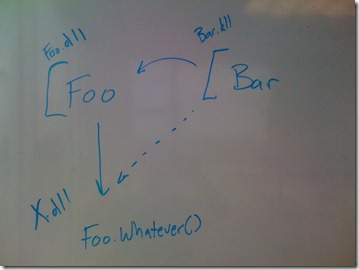 Foo.dll
Bar.dll
Foo
Bar
X.dll
Foo.Whatever()